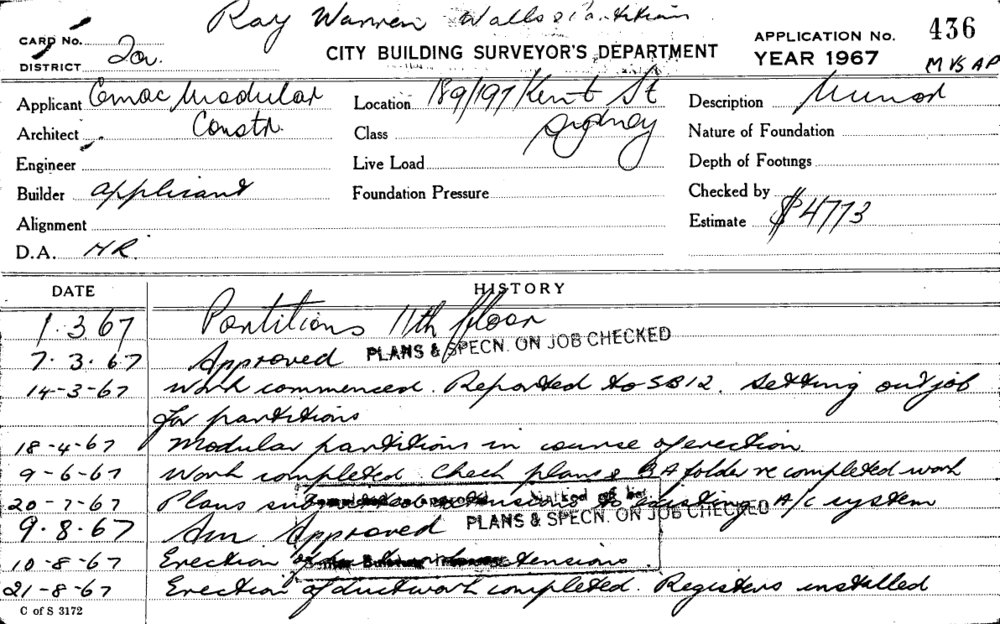 Ray Warren Walls & Partitions
CARD No.
DISTRICT 2a.
CITY BUILDING SURVEYOR'S DEPARTMENT
APPLICATION No. 436
YEAR 1967
M VS AP
Applicant Emac Modular
Constr.
Location 189/197 Kent St
Sydney
Description Minor
Architect
Class
Nature of Foundation
Engineer
Live Load
Depth of Footings
Builder applicant
Foundation Pressure
Checked by
Alignment
Estimate $4773
D.A. MR.
DATE HISTORY
1.3.67 Partitions 11th floor
7.3.67 Approved PLANS & SPECN. ON JOB CHECKED
14-3-67 Work commenced. Reported to SB12. Setting out job
for partitions
18-4-67 Modular partitions in course of erection
9-6-67 Work completed Check plans & BA folder re completed work
20-7-67 Plans existing A/c system
9.8.67 Am. Approved PLANS & SPECN. ON JOB CHECKED
10-8-67 Erection of duct extensions.
21-8-67 Erection of ductwork completed. Registers installed
C of S 3172